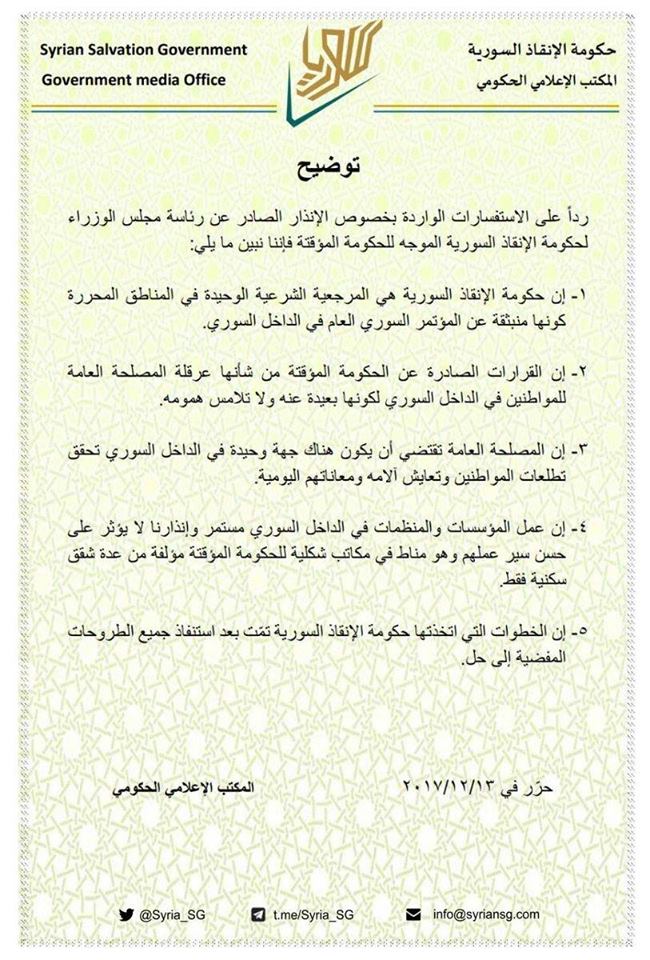 Syrian Salvation Government
Government media Office
حكومة الإنقاذ السورية
المكتب الإعلامي الحكومي
سوريا
توضيح
رداً على الاستفسارات الواردة بخصوص الإنذار الصادر عن رئاسة مجلس الوزراء
لحكومة الإنقاذ السورية الموجه للحكومة المؤقتة فإننا نبين ما يلي:
١- إن حكومة الإنقاذ السورية هي المرجعية الشرعية الوحيدة في المناطق المحررة
كونها منبثقة عن المؤتمر السوري العام في الداخل السوري.
٢- إن القرارات الصادرة عن الحكومة المؤقتة من شأنها عرقلة المصلحة العامة
للمواطنين في الداخل السوري لكونها بعيدة عنه ولا تلامس همومه.
٣- إن المصلحة العامة تقتضي أن يكون هناك جهة وحيدة في الداخل السوري تحقق
تطلعات المواطنين وتعايش آلامه ومعاناتهم اليومية.
٤- إن عمل المؤسسات والمنظمات في الداخل السوري مستمر وإنذارنا لا يؤثر على
حسن سير عملهم وهو مناط في مكاتب شكلية للحكومة المؤقتة مؤلفة من عدة شقق
سكنية فقط.
٥- إن الخطوات التي اتخذتها حكومة الإنقاذ السورية تمّت بعد استنفاذ جميع الطروحات
المفضية إلى حل.
حرّر في ٢٠١٧/١٢/١٣
المكتب الإعلامي الحكومي
@Syria_SG
t.me/Syria_SG
info@syriansg.com